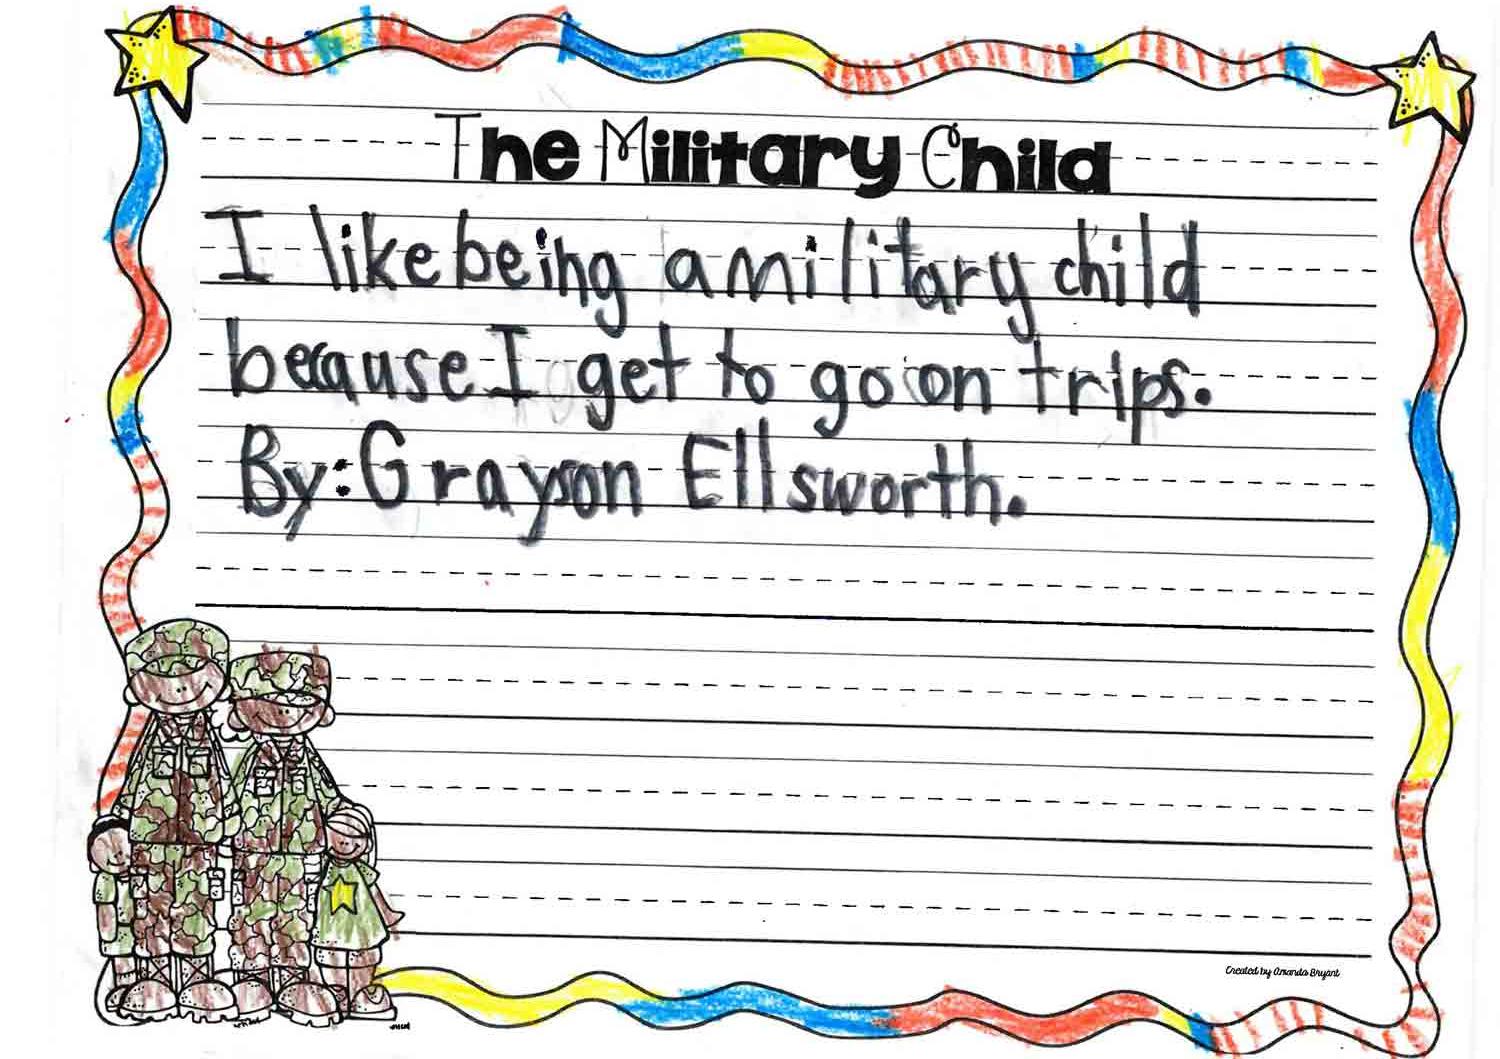 The Military Child
I like being a military child
because I get to go on trips.
By: Grayson Ellsworth.
Created by Amanda Bryant